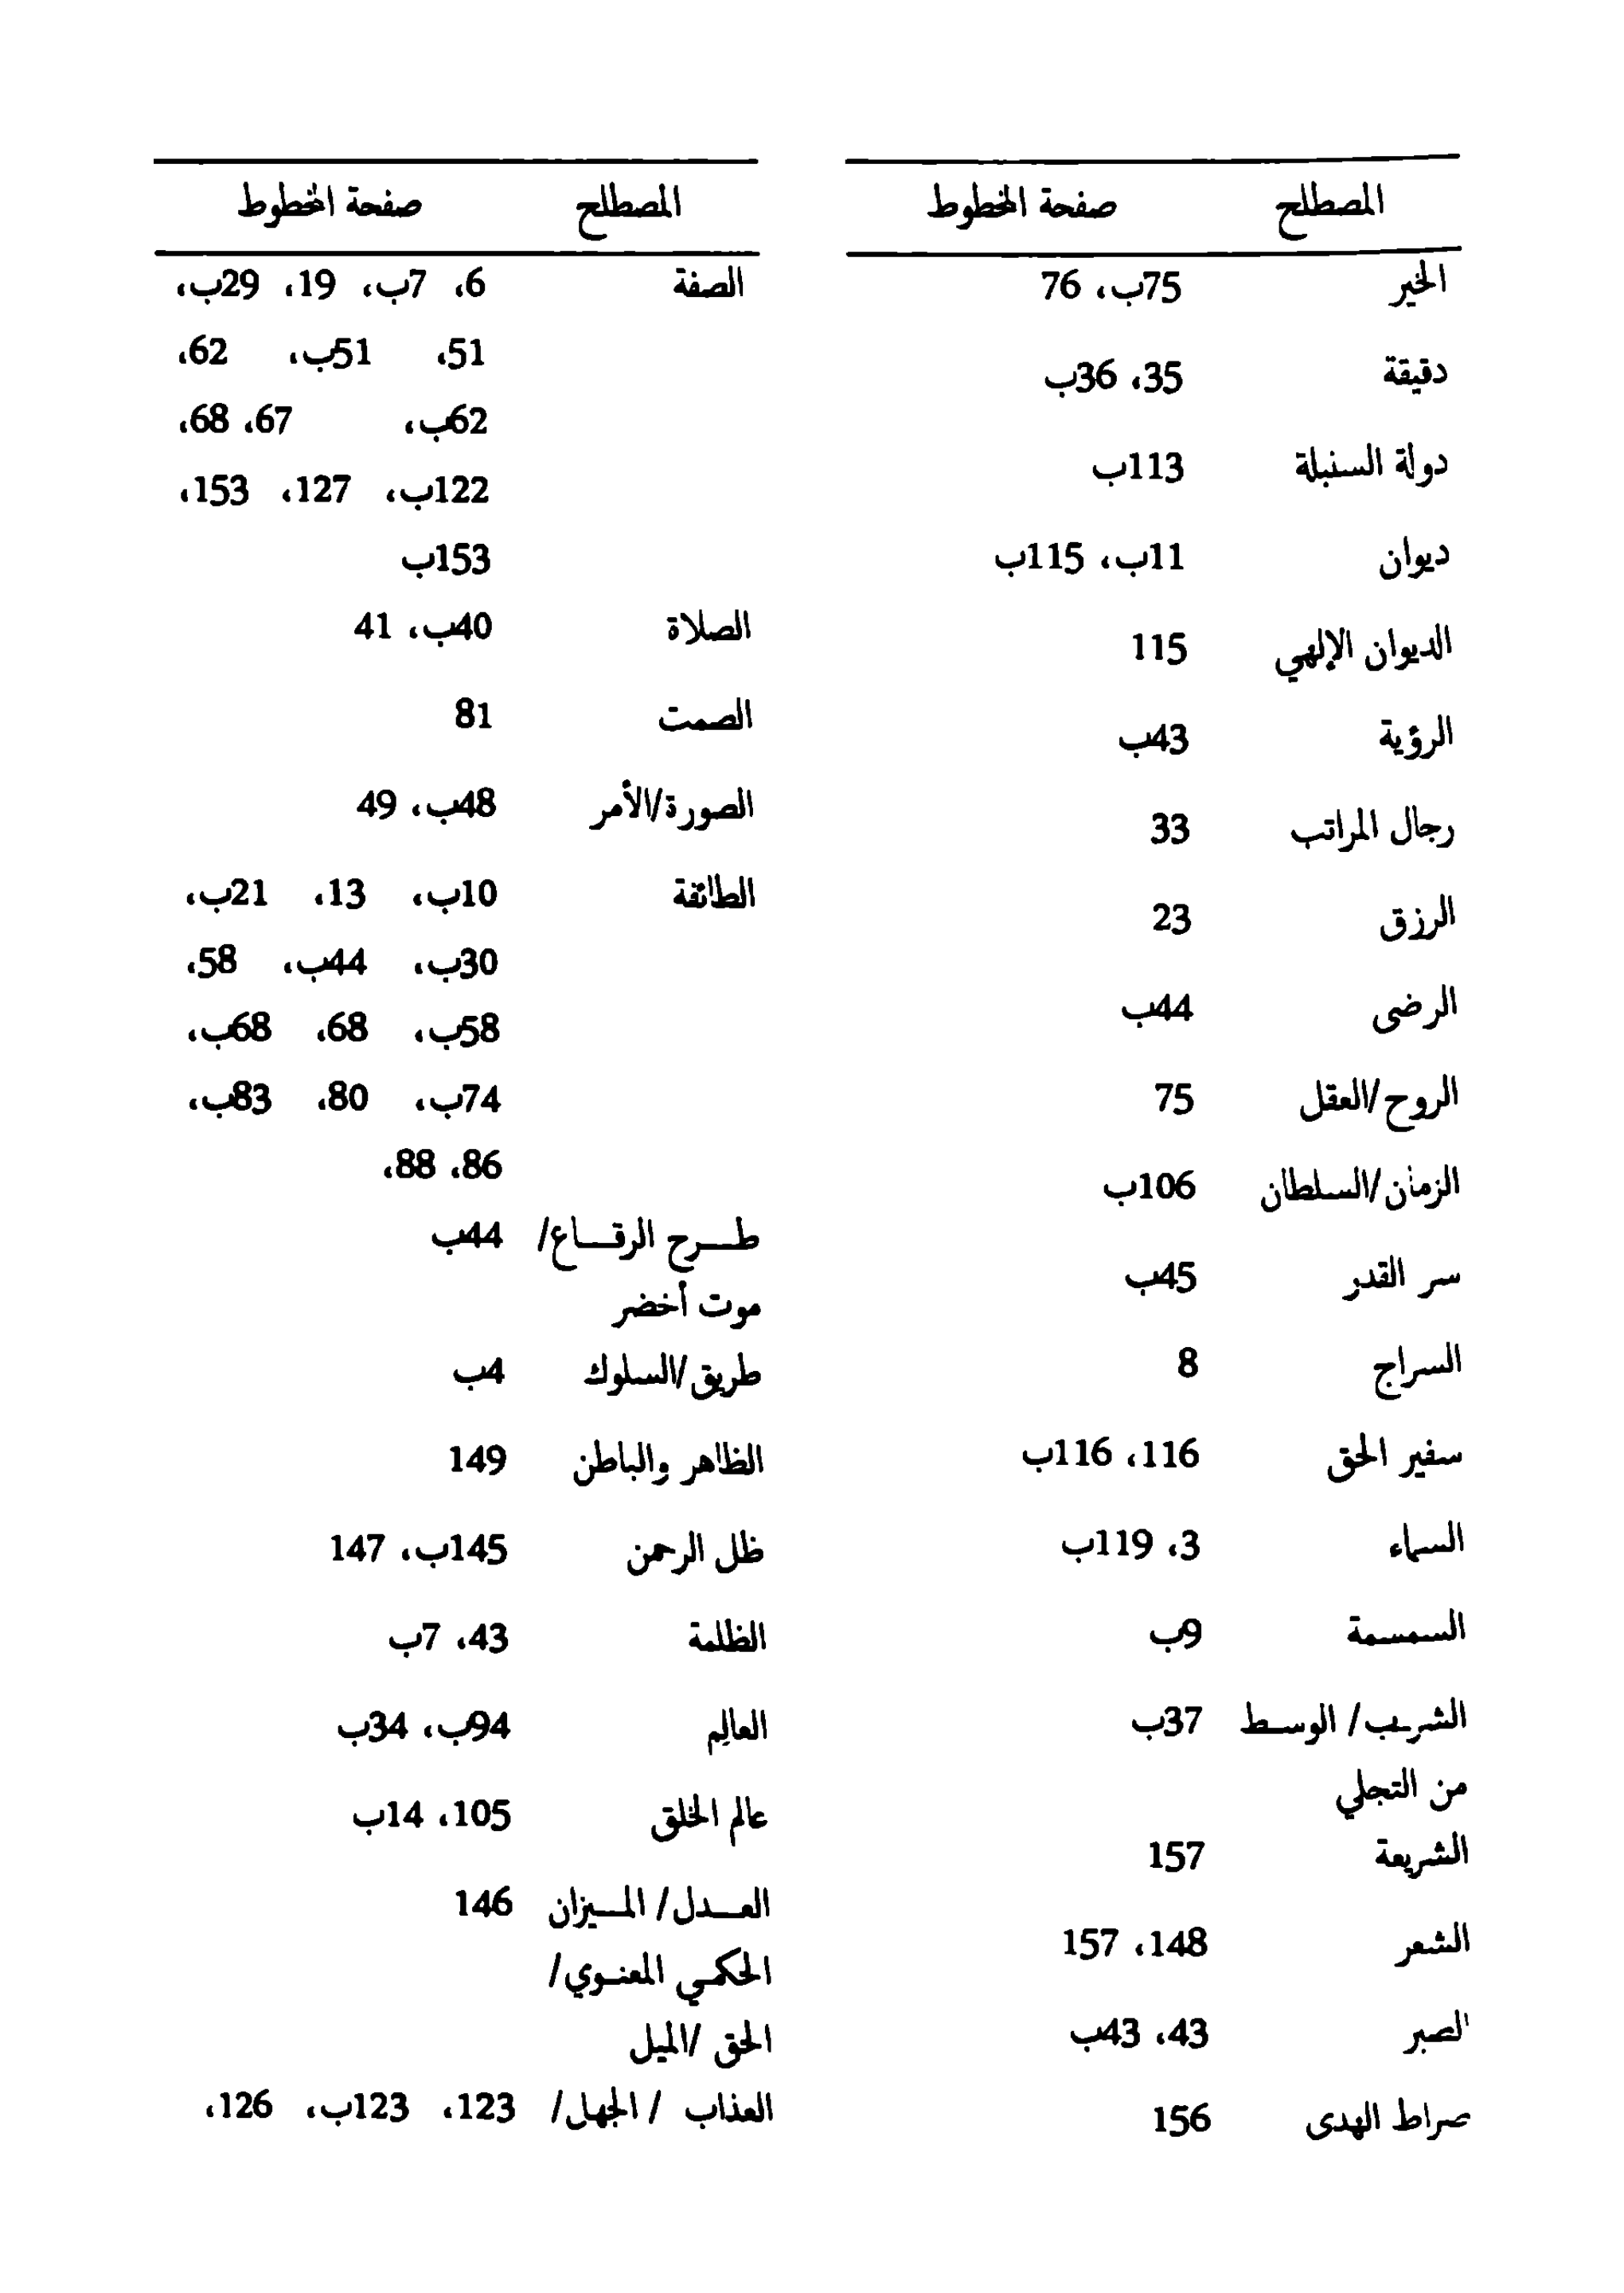 المصطلح صفحة المخطوط
الخير 75ب، 76
دقيقة 35، 36ب
دولة السنبلة 113ب
ديوان 11ب، 115ب
الديوان الإلهي 115
الرؤية 43ب
رجال المراتب 33
الرزق 23
الرضى 44ب
الروح/العقل 75
الزمان/السلطان 106ب
سر القدر 45ب
السراج 8
سفير الحق 116، 116ب
السماء 3، 119ب
السمسمة 9ب
الشريب/ الوسط 37ب
من التجلي
الشريعة 157
الشعر 148، 157
الصبر 43، 43ب
صراط الهدى 156
المصطلح صفحة المخطوط
الصفة 6، 7ب، 19، 29ب،
51، 51ب، 62،
62ب، 67، 68،
122ب، 127، 153،
153ب
الصلاة 40ب، 41
الصمت 81
الصورة/الأمر 48ب، 49
الطائفة 10ب، 13، 21ب،
30ب، 44ب، 58،
58ب، 68، 68ب،
74ب، 80، 83ب،
86، 88،
طرح الرقاع/ 44ب
موت أخضر
طريق/السلوك 4ب
الظاهر والباطن 149
ظل الرحمن 145ب، 147
الظلمة 43، 7ب
العالِم 94ب، 34ب
عالم الخلق 105، 14ب
العدل/ الميزان 146
الحكمي المعنوي/
الحق /الميل
العذاب / الجهل/ 123، 123ب، 126،